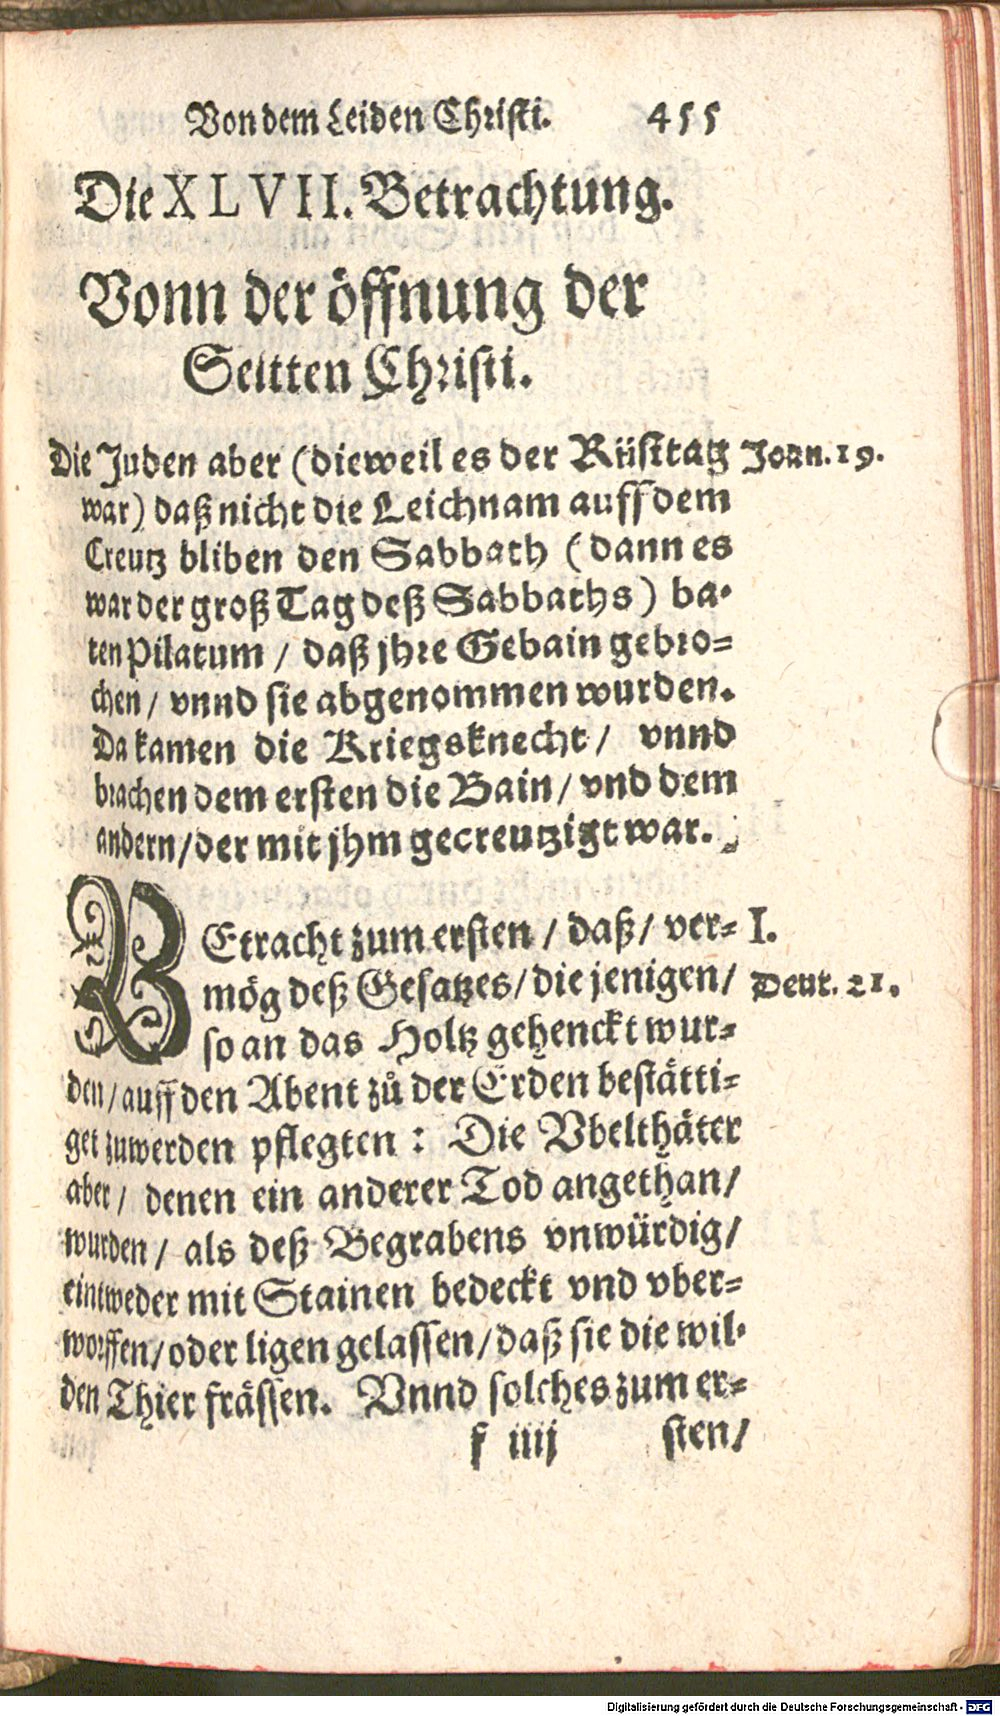 Von dem Leiden Christi. 455
Die XLVII. Betrachtung.
Vonn der öffnung der
Seitten Christi.
Die Juden aber (dieweil es der Rüsttag Joan. 19.
war) daß nicht die Leichnam auff dem
Creutz bliben den Sabbath (dann es
war der groß Tag deß Sabbaths) ba-
ten Pilatum / daß jhre Gebain gebro-
chen / vnnd sie abgenommen wurden.
Da kamen die Kriegsknecht / vnnd
brachen dem ersten die Bain / vnd dem
andern / der mit jhm gecreutzigt war.
BEtracht zum ersten / daß / ver- I.
mög deß Gesatzes / die jenigen / Deut. 21.
so an das Holtz gehenckt wur-
den / auff den Abent zů der Erden bestätti-
get zuwerden pflegten : Die Vbelthäter
aber / denen ein anderer Tod angethan /
wurden / als deß Begrabens vnwürdig /
eintweder mit Stainen bedeckt vnd vber-
worffen / oder ligen gelassen / daß sie die wil-
den Thier frässen. Vnnd solches zum er-
f iiij sten /
Digitalisierung gefördert durch die Deutsche Forschungsgemeinschaft - DFG